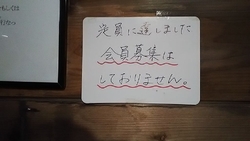 定員に達しました
会員募集は
しておりません。